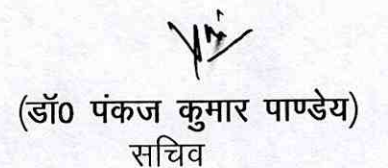 (डॉ0 पंकज कुमार पाण्डेय)
सचिव